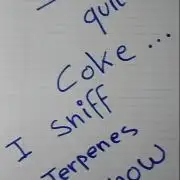 quit
Coke ...
I sniff
Terpenes
now